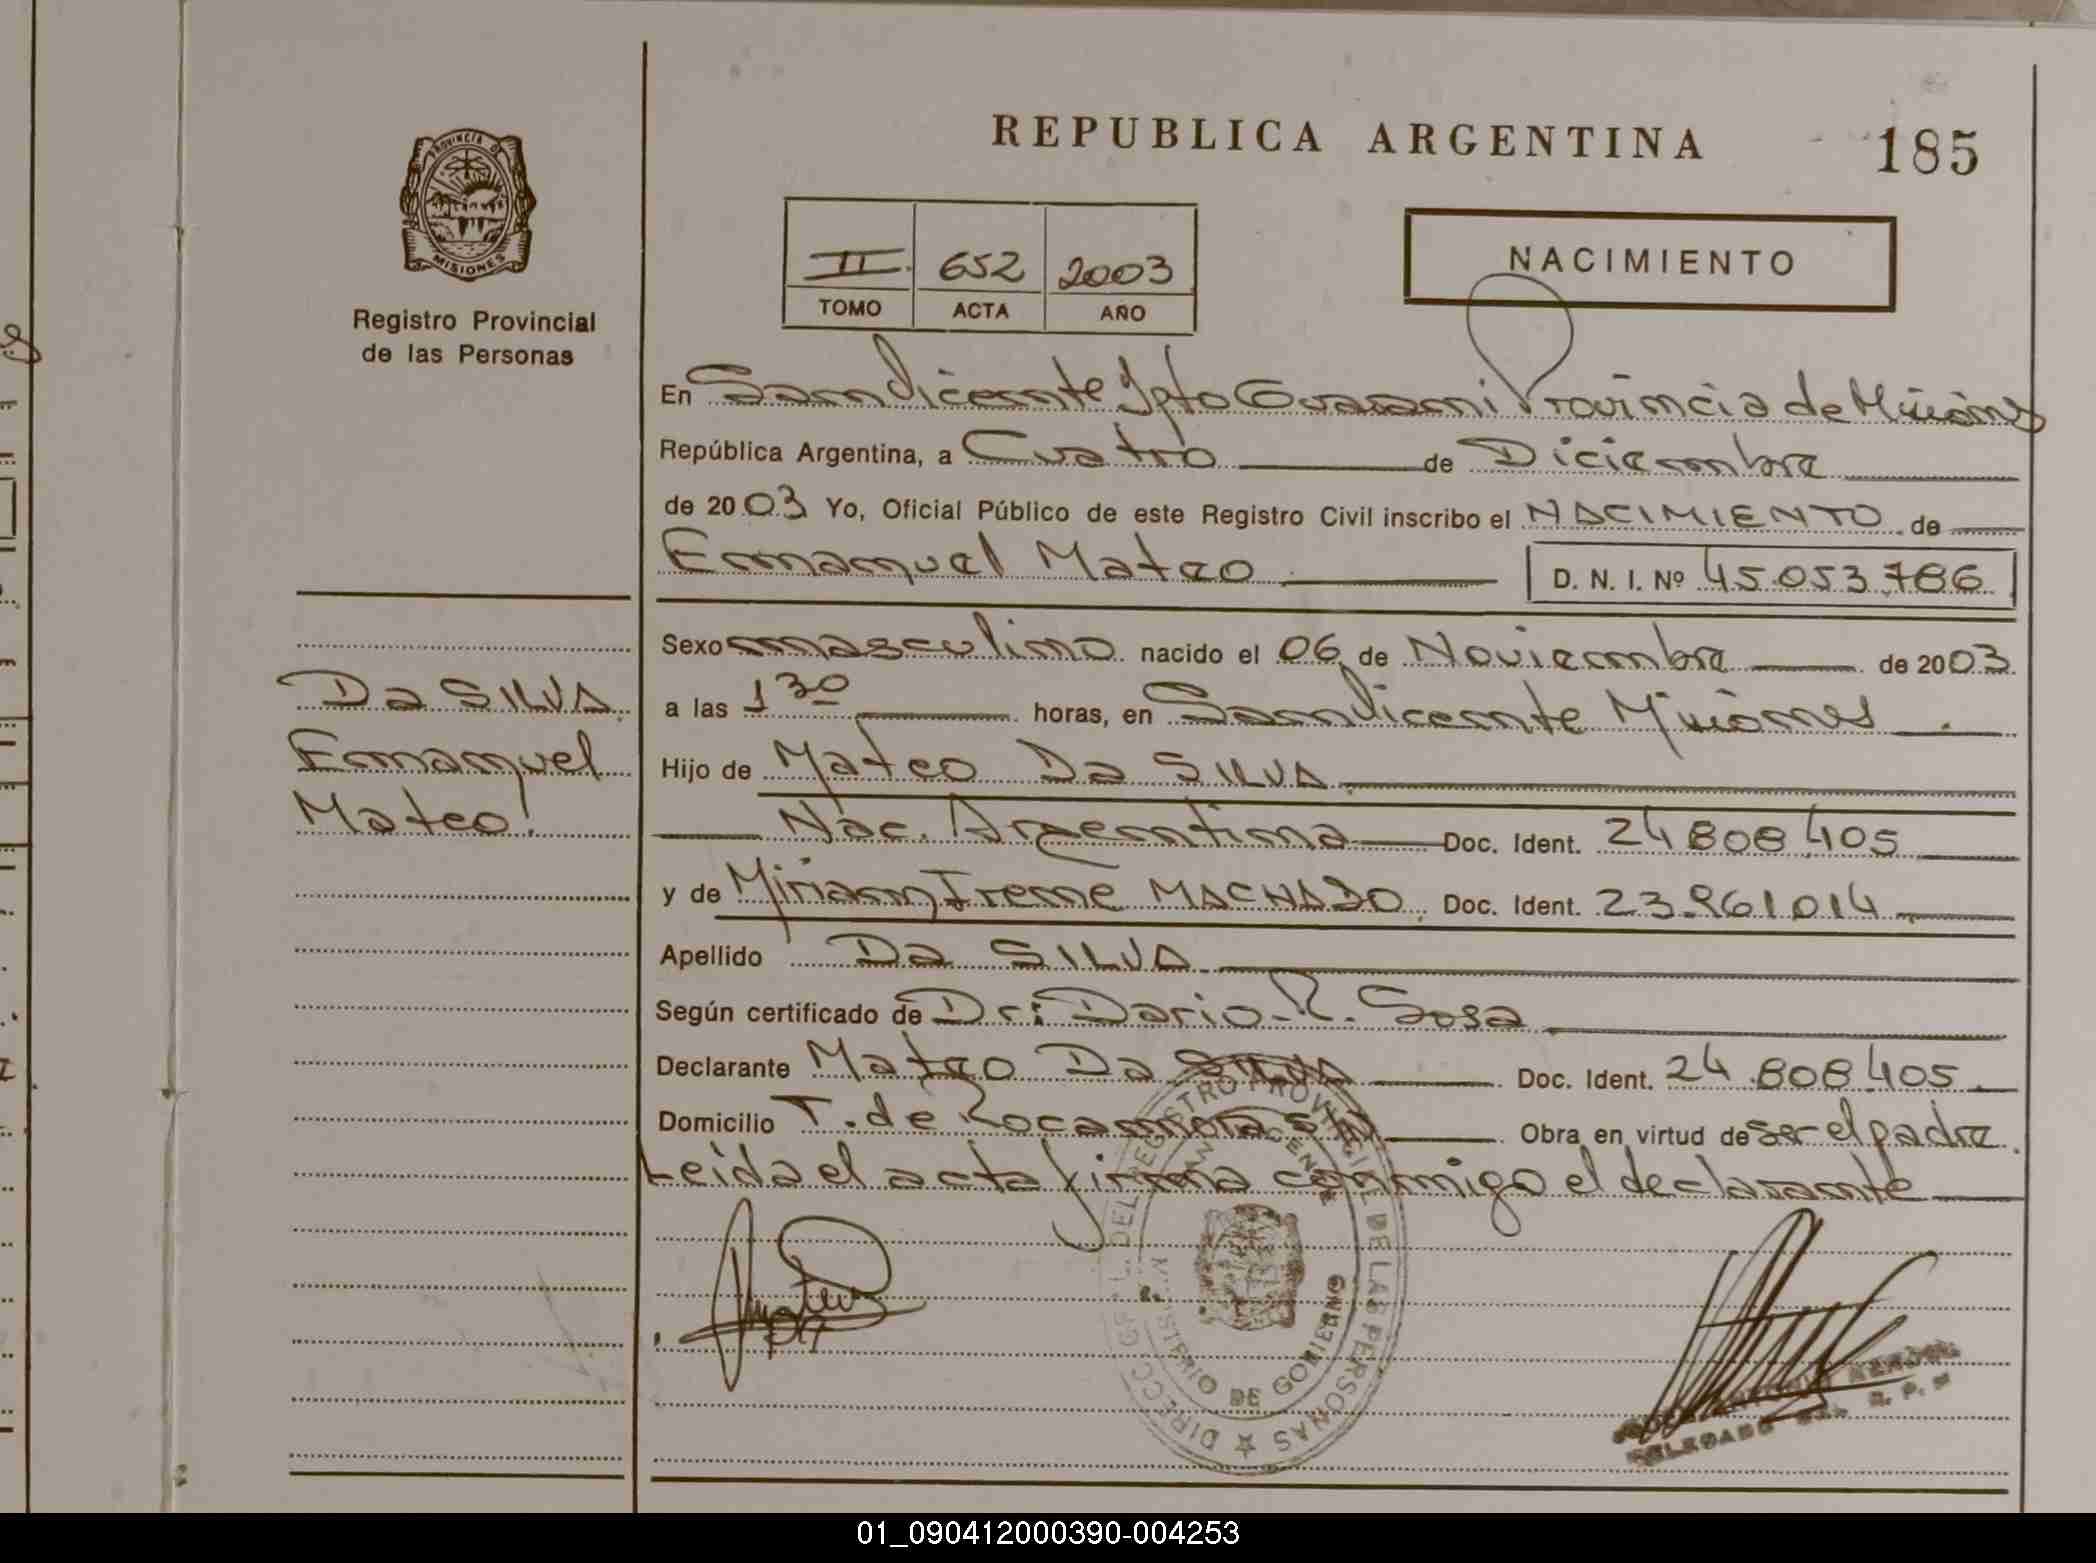 REPUBLICA ARGENTINA
185
PROVINCIA DE
MISIONES
Registro Provincial
de las Personas
II 652 2003
TOMO ACTA AÑO
NACIMIENTO
En San Vicente Dpto Guarani Provincia de Misiones
República Argentina, a Cuatro de Diciembre
de 2003 Yo, Oficial Público de este Registro Civil inscribo el NACIMIENTO de
Emanuel Mateo D. N. I. Nº 45.053.786
Sexo masculino nacido el 06 de Noviembre de 2003
Da SILVA
Emanuel
Mateo
a las 1 30 horas, en San Vicente Misiones
Hijo de Mateo Da SILVA
Nac. Argentina Doc. Ident. 24 808 405
y de Miriam Irene MACHADO Doc. Ident. 23.961 014
Apellido Da SILVA
Según certificado de Dr: Dario R. Sosa
Declarante Mateo Da SILVA Doc. Ident. 24.808.405
Domicilio T. de Rocamora S/N Obra en virtud de ser el padre
Leida el acta firma conmigo el declarante
DIRECC GRAL. DEL REGISTRO PROVINCIAL DE LAS PERSONAS
MINISTERIO DE GOBIERNO
DELEGADO
R. P. M
01_090412000390-004253